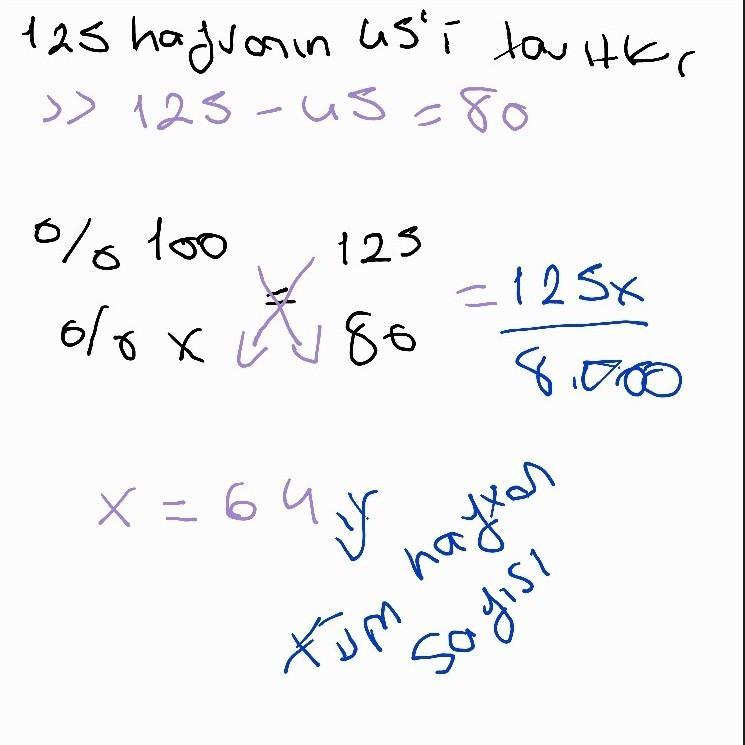 125 hayvanın 45'i tavuksa
>> 125 - 45 = 80
% 100 = 125
% x 80
= 125x / 8.000
x = 64
hayvan
tüm sayısı